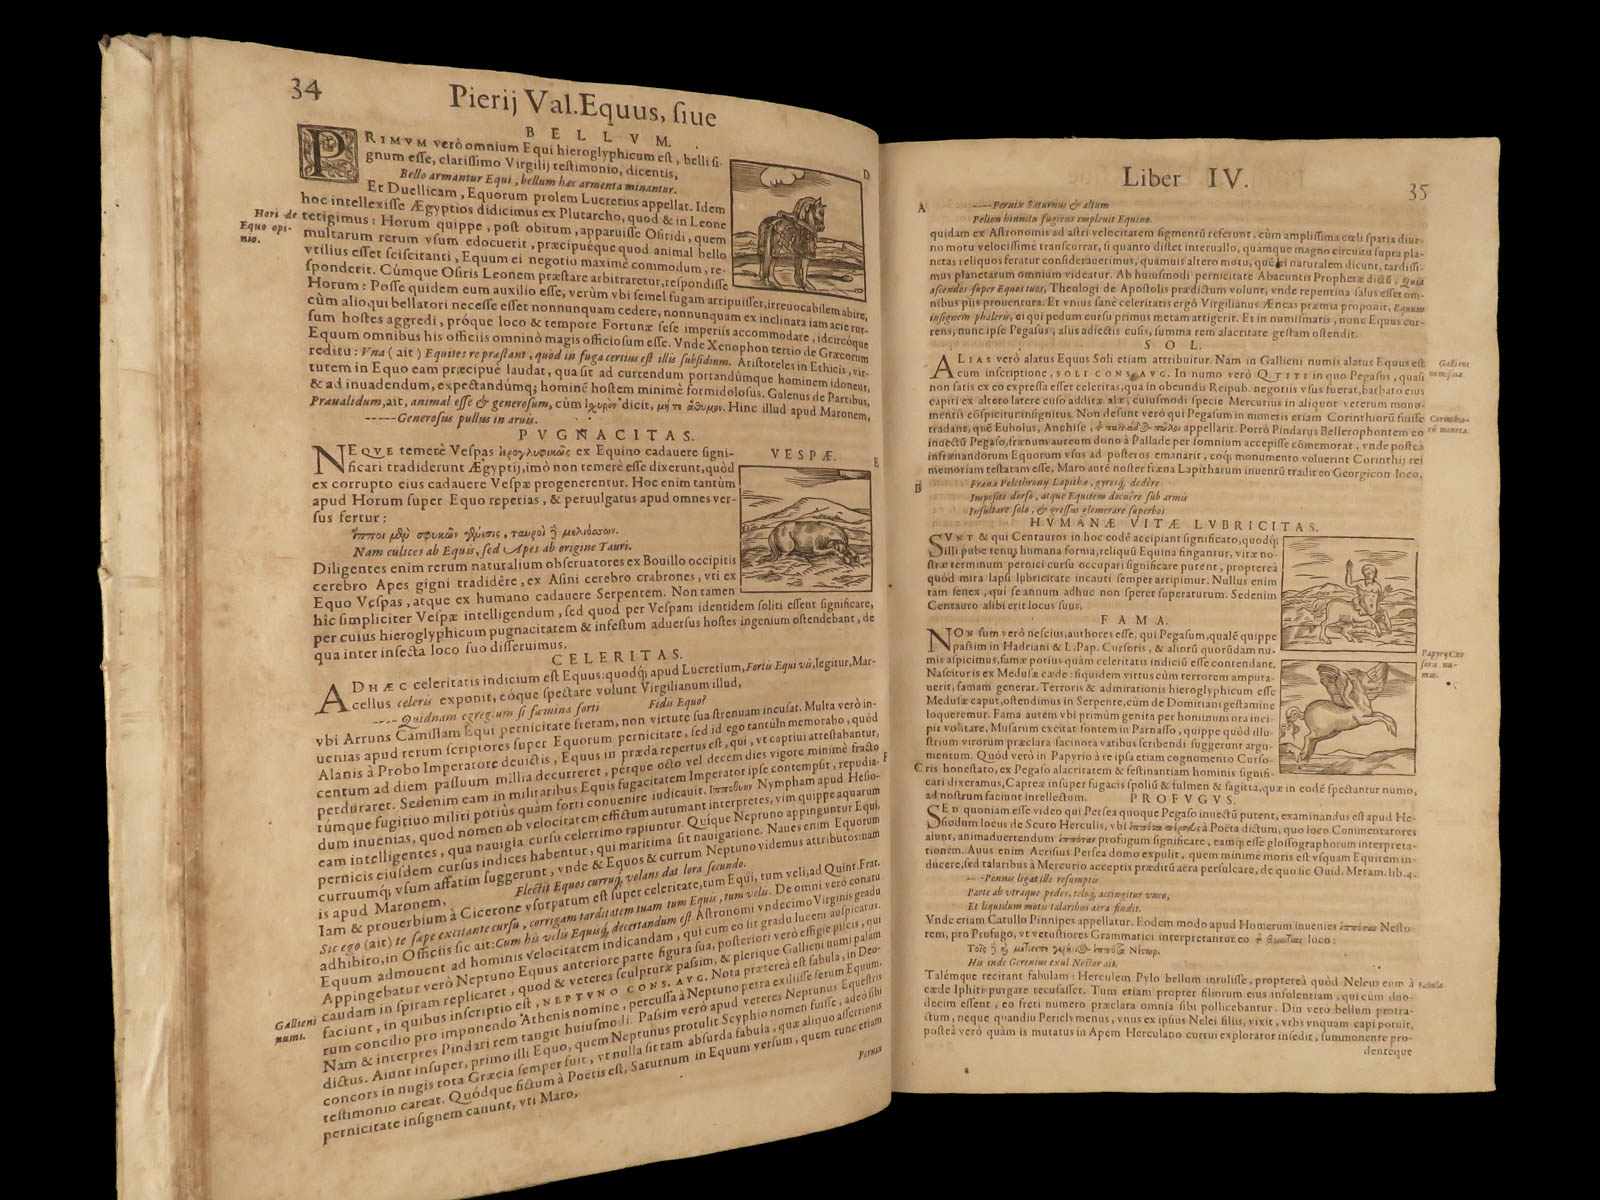 34
Pierij Val. Equus, ſiue
BELLVM.
PRIMVM verò omnium Equi hieroglyphicum eſt, belli ſi-
gnum eſſe, clariſſimo Virgilij teſtimonio, dicentis,
Bello armantur Equi, bellum hæc armenta minantur.
Et Duellicam, Equorum prolem Lucretius appellat. Idem
hoc intellexiſſe Ægyptios didicimus ex Plutarcho, quod & in Leone
tetigimus: Horum quippe, poſt obitum, apparuiſſe Oſiridi, quem
Hori de
Equo opi-
nio.
multarum rerum vſum edocuerit, præcipuéque quod animal bello
vtilius eſſet ſciſcitanti, Equum ei negotio maximè commodum, re-
ſponderit. Cúmque Oſiris Leonem præſtare arbitraretur, reſpondiſſe
Horum: Poſſe quidem eum auxilio eſſe, verùm vbi ſemel fugam arripuiſſet, irreuocabilem abire,
cùm alioqui bellatori neceſſe eſſet nonnunquam cedere, nonnunquam ex inclinata iam acie rur-
ſum hoſtes aggredi, próque loco & tempore Fortunæ ſeſe imperiis accommodare, idcircóque
Equum omnibus his officiis omninò magis officioſum eſſe. Vnde Xenophon tertio de Græcorum
reditu: Vna (ait) Equites repræſtant, quòd in fuga certius eſt illis ſubſidium. Ariſtoteles in Ethicis, vir-
tutem in Equo eam præcipuè laudat, qua ſit ad currendum portandúmque hominem idoneus,
& ad inuadendum, expectandúmq; hominē hoſtem minimè formidoloſus. Galenus de Partibus,
Præualidum, ait, animal eſſe & generoſum, cùm ἰσχυρὸν dicit, μή τι ἄθυμον. Hinc illud apud Maronem,
-----Generoſus pullus in aruis.
PVGNACITAS.
NEQVE temerè Veſpas ἱερογλυφικῶς ex Equino cadauere ſigni-
ficari tradiderunt Ægyptij, imò non temerè eſſe dixerunt, quòd
ex corrupto eius cadauere Veſpæ progenerentur. Hoc enim tantùm
apud Horum ſuper Equo reperias, & peruulgatus apud omnes ver-
ſus fertur:
VESPÆ.
ἵπποι μὲν σφηκῶν γένεσις, ταῦροι δὲ μελισσῶν.
Nam culices ab Equis, ſed Apes ab origine Tauri.
Diligentes enim rerum naturalium obſeruatores ex Bouillo occipitis
cerebro Apes gigni tradidêre, ex Aſini cerebro crabrones, vti ex
Equo Veſpas, atque ex humano cadauere Serpentem. Non tamen
hic ſimpliciter Veſpæ intelligendum, ſed quod per Veſpam identidem ſoliti eſſent ſignificare,
per cuius hieroglyphicum pugnacitatem & infeſtum aduerſus hoſtes ingenium oſtendebant, de
qua inter inſecta loco ſuo diſſeruimus.
CELERITAS.
ADHÆC celeritatis indicium eſt Equus: quodq; apud Lucretium, Fortis Equi vis, legitur, Mar-
cellus celeris exponit, eóque ſpectare volunt Virgilianum illud,
----Quidnam egregium ſi fœmina forti Fidis Equo?
vbi Arruns Camillam Equi pernicitate fretam, non virtute ſua ſtrenuam incuſat. Multa verò in-
uenias apud rerum ſcriptores ſuper Equorum pernicitate, ſed id ego tantùm memorabo, quòd
Alanis à Probo Imperatore deuictis, Equus in præda repertus eſt, qui, vt captiui atteſtabantur,
centum ad diem paſſuum millia decurreret, pérque octo vel decem dies vigore minimè fracto
perduraret. Sedenim eam in militaribus Equis fugacitatem Imperator ipſe contempſit, repudia-
túmque fugitiuo militi potiùs quàm forti conuenire iudicauit. Ἱπποθόην Nympham apud Heſio-
dum inuenias, quod nomen ob velocitatem effictum autumant interpretes, vim quippe aquarum
eam intelligentes, qua nauigia curſu celerrimo rapiuntur. Quíque Neptuno appinguntur Equi,
pernicis eiuſdem curſus indices habentur, qui maritima ſit nauigatione. Naues enim Equorum
curruumq; vſum affatim ſuggerunt, vnde & Equos & currum Neptuno videmus attributos: nam
is apud Maronem,
Flectit Equos curruq; volans dat lora ſecundo.
Iam & prouerbium à Cicerone vſurpatum eſt ſuper celeritate, tum Equi, tum veli, ad Quint. Frat.
Sic ego (ait) te ſæpe excitante curſu, corrigam tarditatem tuam tum Equis, tum velis. De omni verò conatu
adhibito, in Officiis ſic ait: Cum his velis Equiſq; decertandum eſt. Aſtronomi vndecimo Virginis gradu
Equum admouent ad hominis velocitatem indicandam, qui cum eo ſit gradu luceni auſpicatus.
Appingebatur verò Neptuno Equus anteriore parte figura ſua, poſteriori verò effigie piſcis, qui
caudam in ſpiram replicaret, quod & veteres ſculpturæ paſſim, & plerique Gallieni numi palam
Gallieni
numi.
faciunt, in quibus inſcriptio eſt, NEPTVNO CONS. AVG. Nota præterea eſt fabula, in Deo-
rum concilio pro imponendo Athenis nomine, percuſſa à Neptuno petra exiliiſſe ferum Equum.
Nam & interpres Pindari rem tangit huiuſmodi. Paſſim verò apud veteres Neptunus Equeſtris
dictus. Aiunt inſuper, primo illi Equo, quem Neptunus protulit Scyphio nomen fuiſſe, adeò ſibi
concors in nugis tota Græcia ſemper fuit, vt nulla ſit tam abſurda fabula, quæ aliquo aſſertionis
teſtimonio careat. Quódque fictum à Poëtis eſt, Saturnum in Equum verſum, quem tunc etiam
pernicitate inſignem canunt, vti Maro,
Pernix
D
E
F
Liber IV.
35
A
----Pernix Saturnus & altum
Pelion hinnitu fugiens impleuit Equino.
quidam ex Aſtronomis ad aſtri velocitatem figmentū referunt, cùm ampliſſima cœli ſpatia diur-
no motu velociſſimè tranſcurrat, ſi quanto diſtet interuallo, quámque magno circuitu ſupra pla-
netas reliquos feratur conſiderauerimus, quamuis altero motu, quē naturalem dicunt, tardiſſi-
mus planetarum omnium videatur. Ab huiuſmodi pernicitate Abacuntis Prophetæ dictū, Quia
aſcendes ſuper Equos tuos, Theologi de Apoſtolis prædictum volunt, vnde repentina ſalus eſſet om-
nibus piis prouentura. Et vnius ſanè celeritatis ergò Virgilianus Æneas præmia proponit, Equum
inſignem phaleris, ei qui pedum curſu primus metam attigerit. Et in numiſmatis, nunc Equus cur-
rens, nunc ipſe Pegaſus, alus adiectis cuſis, ſumma rem alacritate geſtam oſtendit.
SOL.
ALIAS verò alatus Equus Soli etiam attribuitur. Nam in Gallieni numis alatus Equus eſt
cum inſcriptione, SOLI CONS. AVG. In numo verò Q. TITI in quo Pegaſus, quaſi
Gallieni
numiſma.
non ſatis ex eo expreſſa eſſet celeritas, qua in obeundis Reipub. negotiis vſus fuerat, barbato eius
capiti ex altero latere cuſo additæ alæ, cuiuſmodi ſpecie Mercurius in aliquot veterum monu-
mentis cōſpicitur inſignitus. Non deſunt verò qui Pegaſum in monetis etiam Corinthiorū fuiſſe
Corinthio-
rū moneta.
tradant, quē Eubolus, Anchiſe, appellarit. Porrò Pindarus Bellerophontem eo
inuectū Pegaſo, frænum aureum dono à Pallade per ſomnium accepiſſe cōmemorat, vnde poſteà
infrænandorum Equorum vſus ad poſteros emanarit, eoq; monumento voluerint Corinthij rei
memoriam teſtatam eſſe. Maro autē noſter fræna Lapitharum inuentū tradit eo Georgicon loco,
B
Fræna Pelethronij Lapithæ, gyroſq; dedêre
Impoſiti dorſo, atque Equitem docuêre ſub armis
Inſultare ſolo, & greſſus glomerare ſuperbos
HVMANÆ VITÆ LVBRICITAS.
SVNT & qui Centauros in hoc eodē accipiant ſignificato, quodq;
illi pube tenus humana forma, reliqui Equina fingantur, vitæ no-
ſtræ terminum pernici curſu occupari ſignificare putent, propterea
quòd mira lapſi lubricitate incauti ſemper arripimur. Nullus enim
tam ſenex, qui ſe annum adhuc non ſperet ſuperaturum. Sedenim
Centauro alibi erit locus ſuus,
FAMA.
NON ſum verò neſcius, authores eſſe, qui Pegaſum, qualē quippe
paſſim in Hadriani & L. Pap. Curſoris, & aliorū quorūdam nu-
Papyrij Cur
ſoris nu-
mus.
mis aſpicimus, famæ potiùs quàm celeritatis indiciū eſſe contendant.
Naſcitur is ex Meduſæ cæde: ſiquidem virtus cùm terrorem amputa-
uerit, famam generat. Terroris & admirationis hieroglyphicum eſſe
Meduſæ caput, oſtendimus in Serpente, cùm de Domitiani geſtamine
loqueremur. Fama autem vbi primùm genita per hominum ora inci-
pit volitare, Muſarum excitat fontem in Parnaſſo, quippe quòd illu-
ſtrium virorum præclara facinora vatibus ſcribendi ſuggerunt argu-
mentum. Quòd verò in Papyrio à re ipſa etiam cognomento Curſo-
C
ris honeſtato, ex Pegaſo alacritatem & feſtinantiam hominis ſignifi-
cari dixeramus, Capreæ inſuper fugacis ſpoliū & fulmen & ſagitta, quæ in eodē ſpectantur numo,
ad noſtrum faciunt intellectum.
PROFVGVS.
SED quoniam eſſe video qui Perſea quoque Pegaſo inuectū putent, examinandus eſt apud He-
ſiodum locus de Scuto Herculis, vbi ἱππότα Περσεὺς à Poëta dictum, quo loco Commentatores
aiunt, animaduertendum ἱππόταν profugum ſignificare, eamq; eſſe gloſſographorum interpreta-
tionem. Auus enim Acriſius Perſea domo expulit, quem minimè moris eſt vſquam Equitem in-
ducere, ſed talaribus à Mercurio acceptis præditū aëra perſulcare, de quo ſic Ouid. Metam. lib. 4.
---Pennis ligat ille reſumptis
Parte ab vtraque pedes, teloq; accingitur vnco,
Et liquidum motis talaribus aëra findit.
Vnde etiam Catullo Pinnipes appellatur. Eodem modo apud Homerum inuenies ἱππόταν Neſto-
rem, pro Profugo, vt vetuſtiores Grammatici interpretantur eo loco:
Τοῖς δὲ καὶ μετέειπε γερήνιος ἱππότα Νέστωρ.
His inde Gerenius exul Neſtor ait.
Talémque recitant fabulam: Herculem Pylo bellum intuliſſe, propterea quòd Neleus eum à
Fabula.
cæde Iphiti purgare recuſaſſet. Tum etiam propter filiorum eius inſolentiam, qui cùm duo-
decim eſſent, eo freti numero præclara omnia ſibi pollicebantur. Diu verò bellum protra-
ctum, neque quandiu Periclymenus, vnus ex ipſius Nelei filiis, vixit, vrbs vnquam capi potuit,
poſteà verò quàm is mutatus in Apem Herculano currui explorator inſedit, ſummonente pru-
denteque